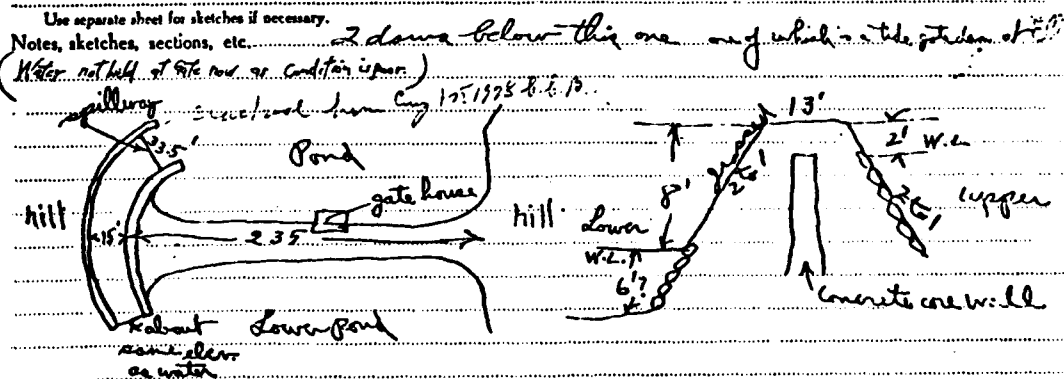 Use separate sheet for sketches if necessary.
Notes, sketches, sections, etc. 2 dams below this one one of which is a tide
(Water not held at gate now as condition is poor.)
from Aug 1975
spillway
23.5'
Pond
gate house
hill
15'
235
hill
Lower pond
about
same elev.
as water
13'
2'
W.L.
8'
2 to 1
2 to 1
upper
Lower
W.L.
6'?
concrete core wall